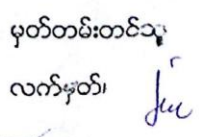 မှတ်တမ်းတင်သူ
လက်မှတ်၊